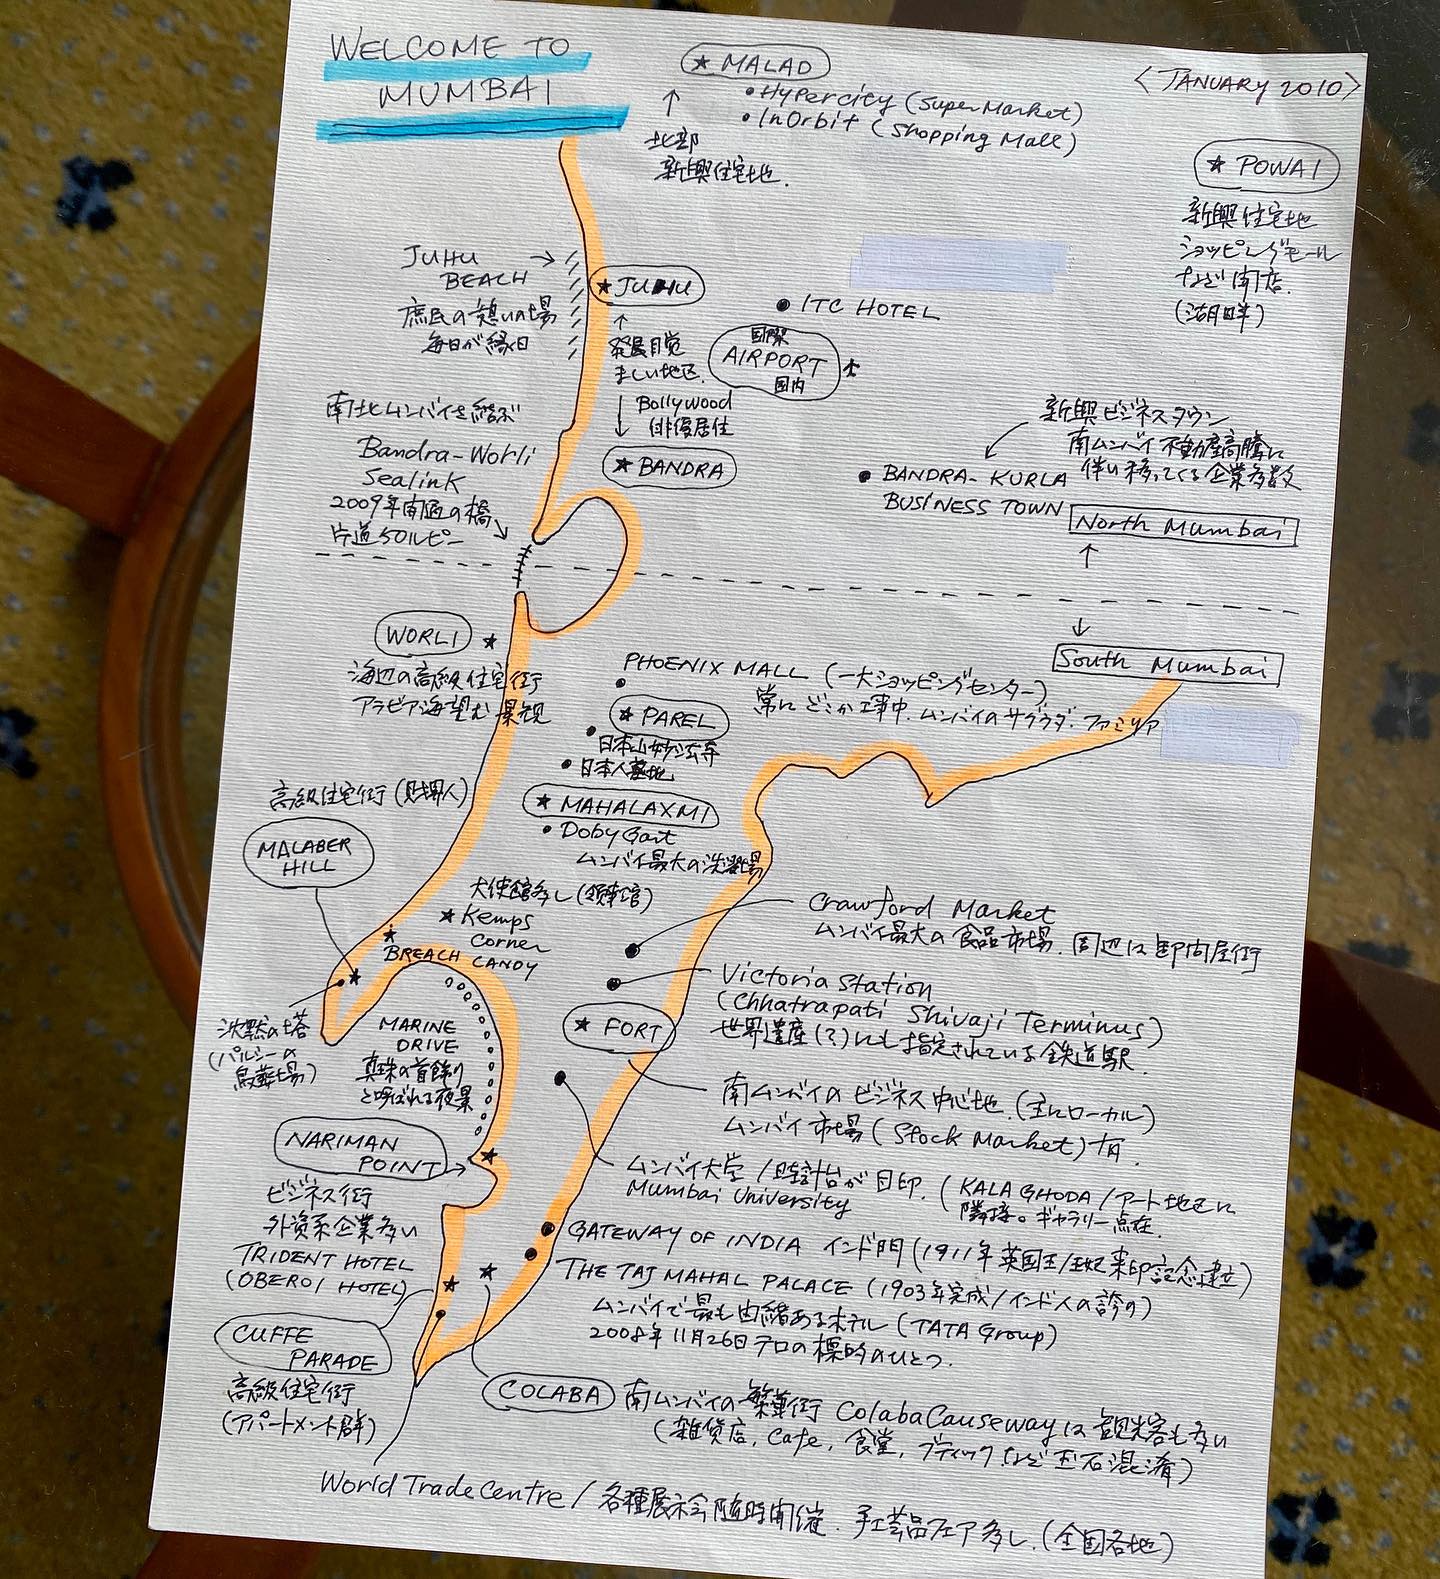 WELCOME TO
MUMBAI
<JANUARY 2010>
★ MALAD
•Hypercity (Super Market)
•InOrbit (Shopping Mall)
↑
北部
新興住宅地.
★ POWAI
新興住宅地
ショッピングモール
など開店.
(湖畔)
JUHU →
BEACH
庶民の憩いの場
毎日が縁日
★JUHU
↑
発展目覚
ましい地区.
↓ Bollywood
俳優居住
★ BANDRA
• ITC HOTEL
国際
AIRPORT
国内
南北ムンバイを結ぶ
Bandra-Worli
Sealink
2009年開通の橋
片道50ルピー
新興ビジネスタウン
南ムンバイ不動産高騰に
伴い移ってくる企業多数
• BANDRA-KURLA
BUSINESS TOWN
North Mumbai
↑
↓
South Mumbai
WORLI ★
海辺の高級住宅街
アラビア海望む景観
PHOENIX MALL (一大ショッピングセンター)
常にどこか工事中. ムンバイのサグラダ・ファミリア
★ PAREL
•日本山妙法寺
•日本人墓地
★ MAHALAXMI
• Doby Gart
ムンバイ最大の洗濯場
高級住宅街 (財界人)
MALABER
HILL
大使館多し (領事館)
★ Kemps
Corner
★
BREACH CANDY
Crawford Market
ムンバイ最大の食品市場. 周辺は卸問屋街
Victoria Station
(Chhatrapati Shivaji Terminus)
世界遺産(?)にも指定されている鉄道駅.
★ FORT
南ムンバイのビジネス中心地. (主にローカル)
ムンバイ市場 (Stock Market) 有.
沈黙の塔
(パルシーの
鳥葬場)
MARINE
DRIVE
真珠の首飾り
と呼ばれる夜景
NARIMAN
POINT
ビジネス街
外資系企業多い
TRIDENT HOTEL
(OBEROI HOTEL)
ムンバイ大学 / 時計台が目印. (KALA GHODA / アート地区に
Mumbai University
隣接。ギャラリー点在.
GATEWAY OF INDIA インド門 (1911年英国王/王妃来印記念建立)
THE TAJ MAHAL PALACE (1903年完成/インド人の誇り)
ムンバイで最も由緒あるホテル (TATA Group)
2008年11月26日テロの標的のひとつ.
CUFFE
PARADE
高級住宅街
(アパートメント群)
COLABA 南ムンバイの繁華街 Colaba Causeway は観光客も多い
(雑貨店, Cafe, 食堂, ブティックなど玉石混淆)
World Trade Centre / 各種展示会随時開催. 手工芸品フェア多し. (全国各地)